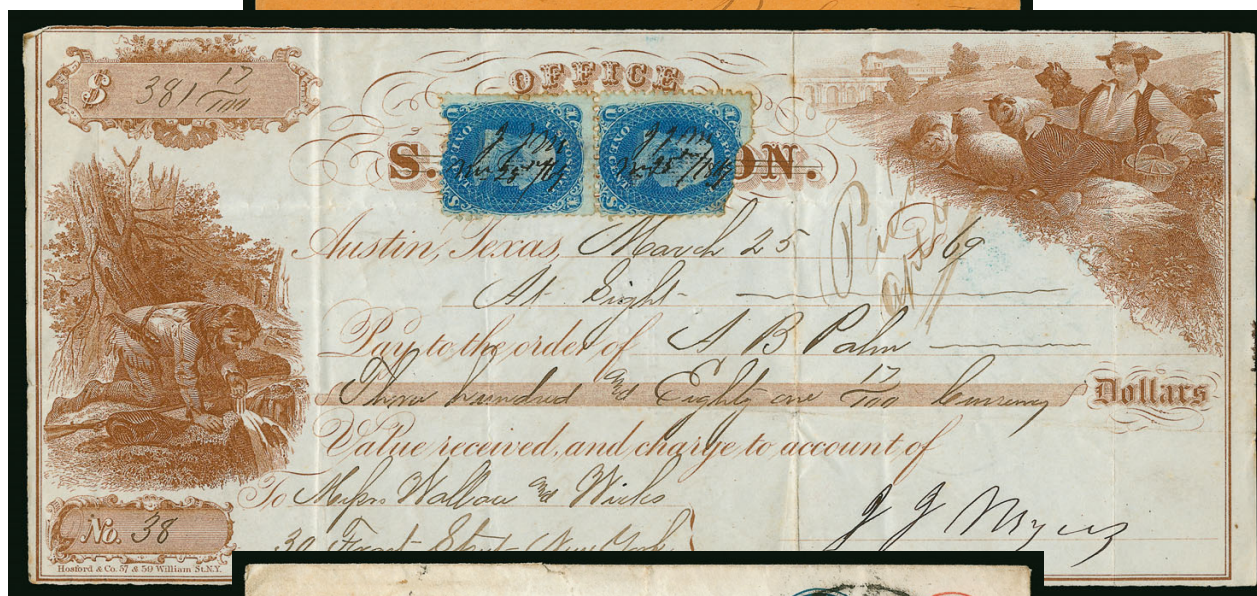 $ 381 17/100
OFFICE
S. ON.
Austin, Texas, March 25 1869
At Sight
Pay to the order of S B Palm
Three hundred and Eighty one 17/100 Currency Dollars
Value received, and charge to account of
To Messrs Wallace and Wicks
30 Front Street New York
J J Myers
No. 38
Hosford & Co. 57 & 59 William St. N.Y.